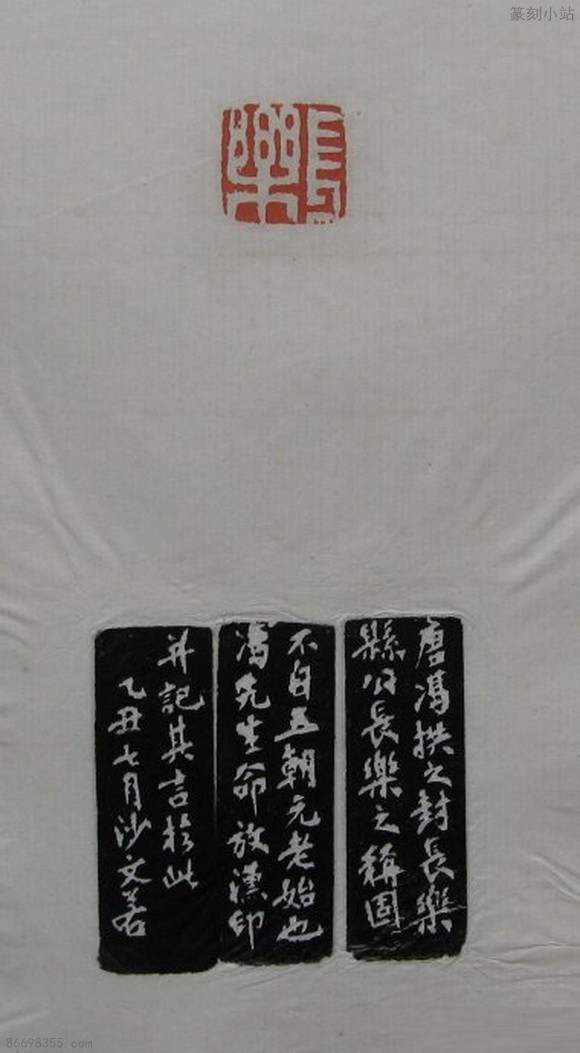 篆刻小站
長樂
唐馮拱之封長樂
縣公長樂之稱固
不自五朝元老始也
馮先生命放漢印
并記其言於此
乙丑七月沙文若
86698355.com